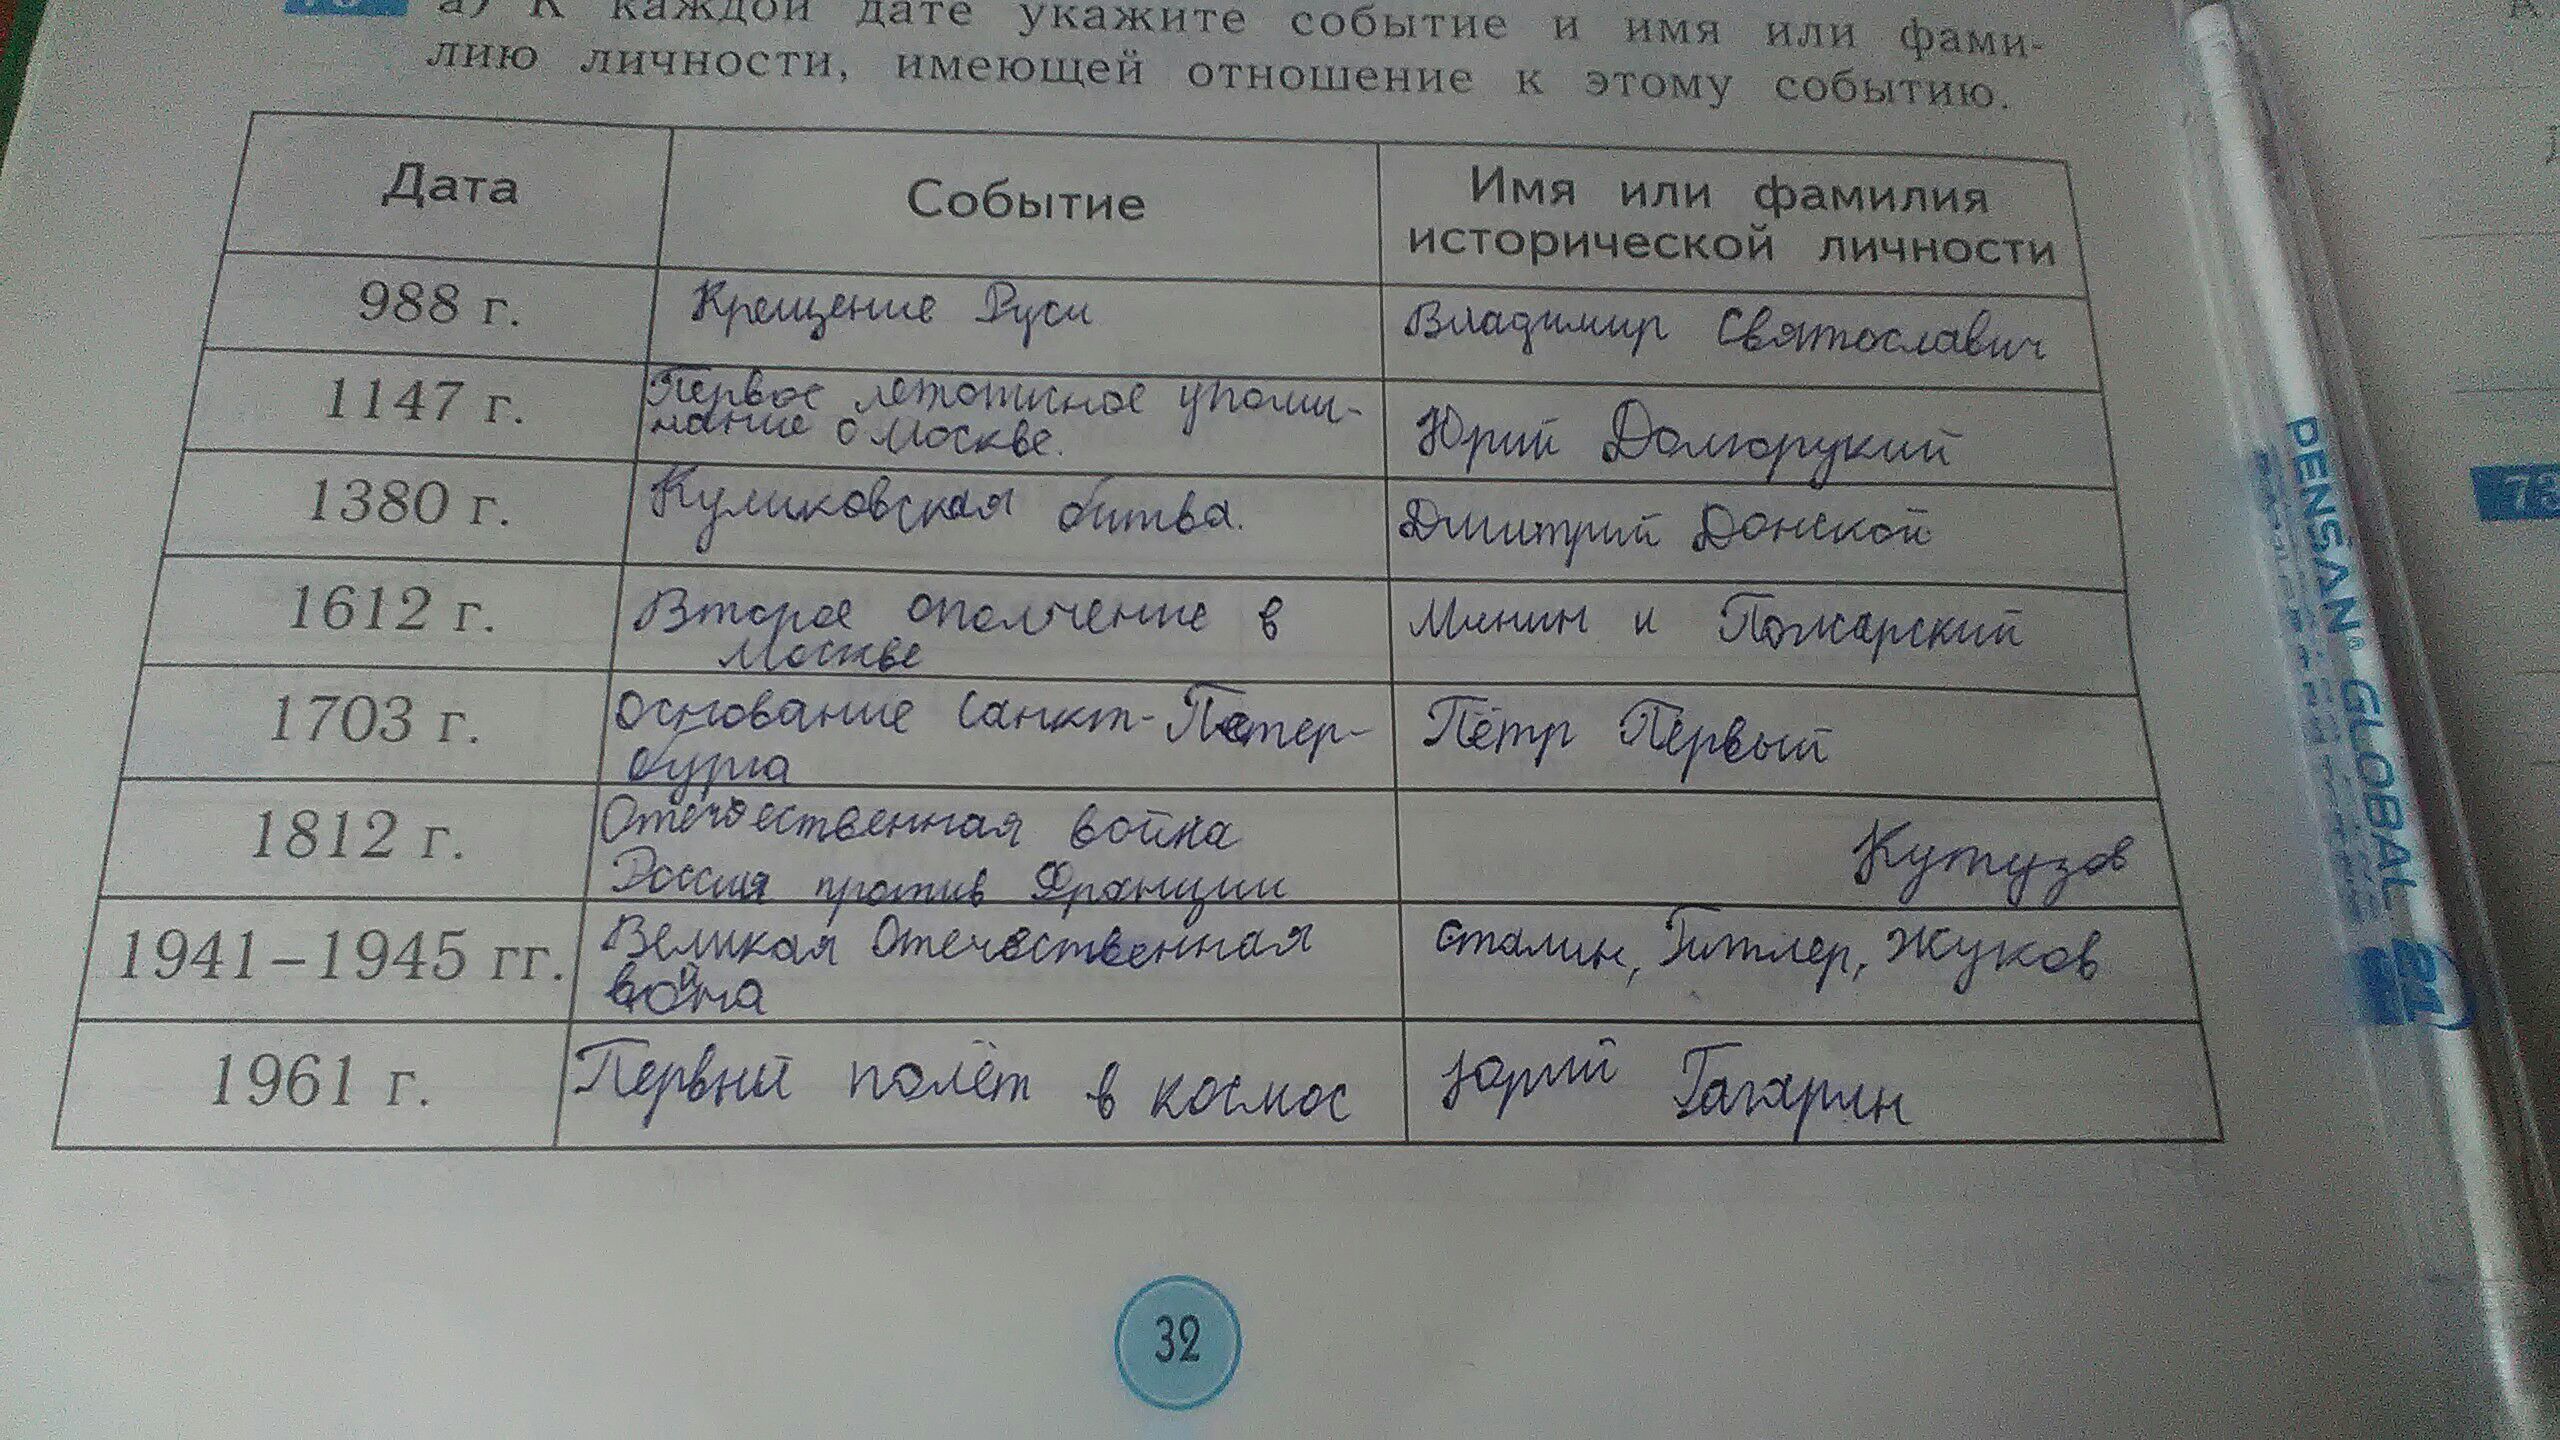 а) К каждой дате укажите событие и имя или фами-
лию личности, имеющей отношение к этому событию.
Дата
Событие
Имя или фамилия
исторической личности
988 г.
Крещение Руси
Владимир Святославич
1147 г.
Первое летописное упоми-
нание о Москве.
Юрий Долгорукий
1380 г.
Куликовская битва.
Дмитрий Донской
1612 г.
Второе ополчение в
Москве
Минин и Пожарский
1703 г.
основание Санкт-Петер-
бурга
Пётр Первый
1812 г.
Отечественная война
Россия против Франции
Кутузов
1941–1945 гг.
Великая Отечественная
война
Сталин, Гитлер, Жуков
1961 г.
Первый полёт в космос
Юрий Гагарин
32
PENSAN® GLOBAL 21
73